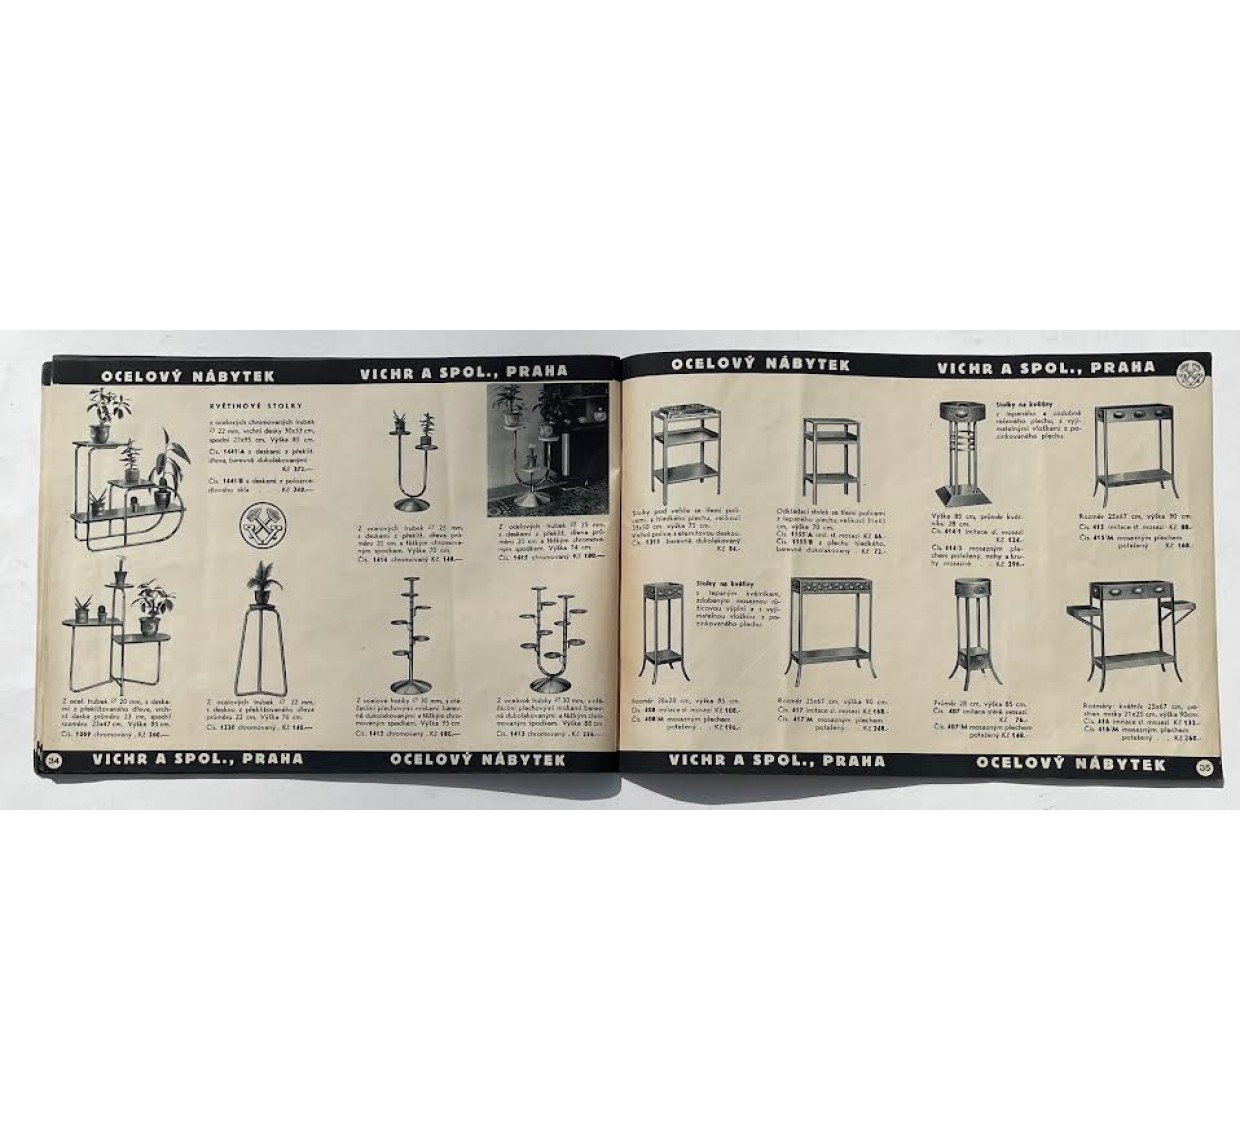 OCELOVÝ NÁBYTEK
VICHR A SPOL., PRAHA
KVĚTINOVÉ STOLKY
z ocelových chromovaných trubek
∅ 22 mm, vrchní desky 30x35 cm,
spodní 27x95 cm, Výška 85 cm.
Čís. 1441/A s deskami z překliž.
dřeva, barevně dukolakovanými
Kč 272.—
Čís. 1441/B s deskami z polozrca-
dlového skla . . . Kč
Z ocelových trubek ∅ 25 mm,
s deskami z překliž. dřeva prů-
měru 20 cm a těžkým chromova-
ným spodkem. Výška 70 cm.
Čís. 1414 chromovaný Kč 148.—
Z ocelových trubek ∅ 25 mm,
s deskami z překliž. dřeva prů-
měru 20 cm a těžkým chromova-
ným spodkem. Výška 74 cm.
Čís. 1415 chromovaný Kč 180.—
Z ocel. trubek ∅ 20 mm, s deska-
mi z překližovaného dřeva, vrch-
ní deska průměru 23 cm, spodní
rozměru 23x47 cm. Výška 85 cm.
Čís. 1069 chromovaný . Kč 260.—
Z ocelových trubek ∅ 22 mm,
s deskou z překližovaného dřeva
průměru 22 cm. Výška 76 cm.
Čís. 1230 chromovaný . Kč 148.—
Z ocelové trubky ∅ 30 mm, s otá-
čecími plechovými miskami barev-
ně dukolakovanými a těžkým chro-
movaným spodkem. Výška 95 cm
Čís. 1412 chromovaný . Kč 180.—
Z ocelové trubky ∅ 30 mm, s otá-
čecími plechovými miskami barev-
ně dukolakovanými a těžkým chro-
movaným spodkem. Výška 88 cm.
Čís. 1413 chromovaný . Kč
34
VICHR A SPOL., PRAHA
OCELOVÝ NÁBYTEK
OCELOVÝ NÁBYTEK
VICHR A SPOL., PRAHA
Stolky pod vařiče se třemi polic-
emi, z hladkého plechu, velikosti
35x50 cm, výška 75 cm.
Vrchní police s eternitovou deskou.
Čís. 1311 barevně dukolakovaný
Kč 84.-
Odkládací stolek se třemi policemi
z lepaného plechu, velikosti 31x45
cm, výška 70 cm.
Čís. 1155/A imit. sl. mosazi Kč 66.-
Čís. 1155/B z plechu hladkého,
barevně dukolakovaný . Kč 72.-
Stolky na květiny
z lepaného a ozdobně
raženého plechu, s vyjí-
matelnými vložkami z po-
zinkovaného plechu.
Výška 85 cm, průměr květ-
níku 28 cm.
Čís. 414/1 imitace sl. mosazi
Kč 124.-
Čís. 414/3 mosazným ple-
chem potažený, nohy a kru-
hy mosazné . . Kč 296.-
Rozměr 25x67 cm, výška 90 cm.
Čís. 415 imitace sl. mosazi Kč 88.-
Čís. 415/M mosazným plechem
potažený . Kč 168.-
Stolky na květiny
s lepaným květníkem,
zdobeným mosaznou rů-
žicovou výplní a s vyjí-
matelnou vložkou z po-
zinkovaného plechu.
Rozměr 28x28 cm, výška 85 cm.
Čís. 408 imitace sl. mosazi Kč 100.-
Čís. 408/M mosazným plechem
potažený . . Kč 196.-
Rozměr 25x67 cm, výška 90 cm.
Čís. 417 imitace sl. mosazi Kč 168.-
Čís. 417/M mosazným plechem
potažený . . Kč 248.-
Průměr 28 cm, výška 85 cm.
Čís. 407 imitace stěr. mosazi
Kč 76.-
Čís. 407/M mosazným plechem
potažený Kč 148.-
Rozměry: květník 25x67 cm, po-
stran. misky 21x25 cm, výška 90cm.
Čís. 416 imitace sl. mosazi Kč 132.-
Čís. 416/M mosazným plechem
potažený . . Kč 260.-
VICHR A SPOL., PRAHA
OCELOVÝ NÁBYTEK
35